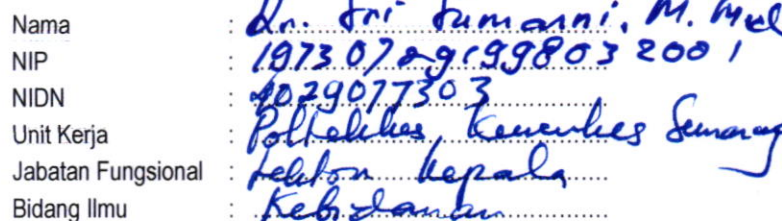 Nama : Dr. Sri Sumarni, M. Mid
NIP : 197307291998032001
NIDN : 4029077303
Unit Kerja : Poltekkes Kemenkes Semarang
Jabatan Fungsional : Lektor Kepala
Bidang Ilmu : Kebidanan